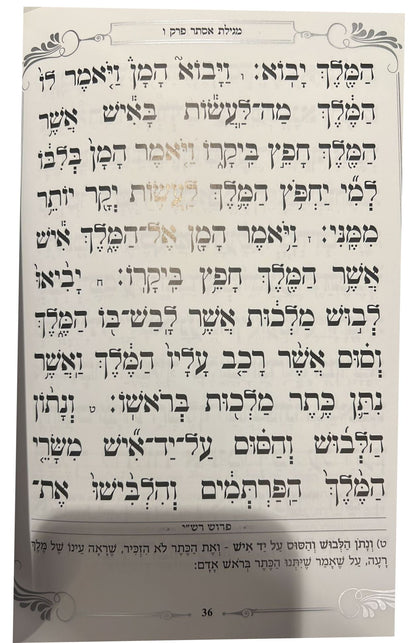 מגילת אסתר פרק ו
הַמֶּ֖לֶךְ יָבֽוֹא׃ ו וַיָּבוֹא֮ הָמָן֒ וַיֹּ֤אמֶר לוֹ֙
הַמֶּ֔לֶךְ מַה־לַּעֲשׂ֕וֹת בָּאִ֕ישׁ אֲשֶׁ֥ר
הַמֶּ֖לֶךְ חָפֵ֣ץ בִּיקָר֑וֹ וַיֹּ֤אמֶר הָמָן֙ בְּלִבּ֔וֹ
לְמִ֞י יַחְפֹּ֥ץ הַמֶּ֛לֶךְ לַעֲשׂ֥וֹת יְקָ֖ר יוֹתֵ֥ר
מִמֶּֽנִּי׃ ז וַיֹּ֥אמֶר הָמָ֖ן אֶל־הַמֶּ֑לֶךְ אִ֕ישׁ
אֲשֶׁ֥ר הַמֶּ֖לֶךְ חָפֵ֥ץ בִּיקָרֽוֹ׃ ח יָבִ֙יאוּ֙
לְב֣וּשׁ מַלְכ֔וּת אֲשֶׁ֥ר לָֽבַשׁ־בּ֖וֹ הַמֶּ֑לֶךְ
וְס֗וּס אֲשֶׁ֨ר רָכַ֤ב עָלָיו֙ הַמֶּ֔לֶךְ וַאֲשֶׁ֥ר
נִתַּ֛ן כֶּ֥תֶר מַלְכ֖וּת בְּרֹאשֽׁוֹ׃ ט וְנָת֨וֹן
הַלְּב֜וּשׁ וְהַסּ֗וּס עַל־יַד־אִ֞ישׁ מִשָּׂרֵ֤י
הַמֶּ֙לֶךְ֙ הַֽפַּרְתְּמִ֔ים וְהִלְבִּ֙ישׁוּ֙ אֶת־
פרוש רש״י
ט) וְנָתֹן הַלְּבוּשׁ וְהַסּוּס עַל יַד אִישׁ - וְאֶת הַכֶּתֶר לֹא הִזְכִּיר, שֶׁרָאָה עֵינוֹ שֶׁל מֶלֶךְ
רָעָה, עַל שֶׁאָמַר שֶׁיִּתְּנוּ הַכֶּתֶר בְּרֹאשׁ אָדָם:
36